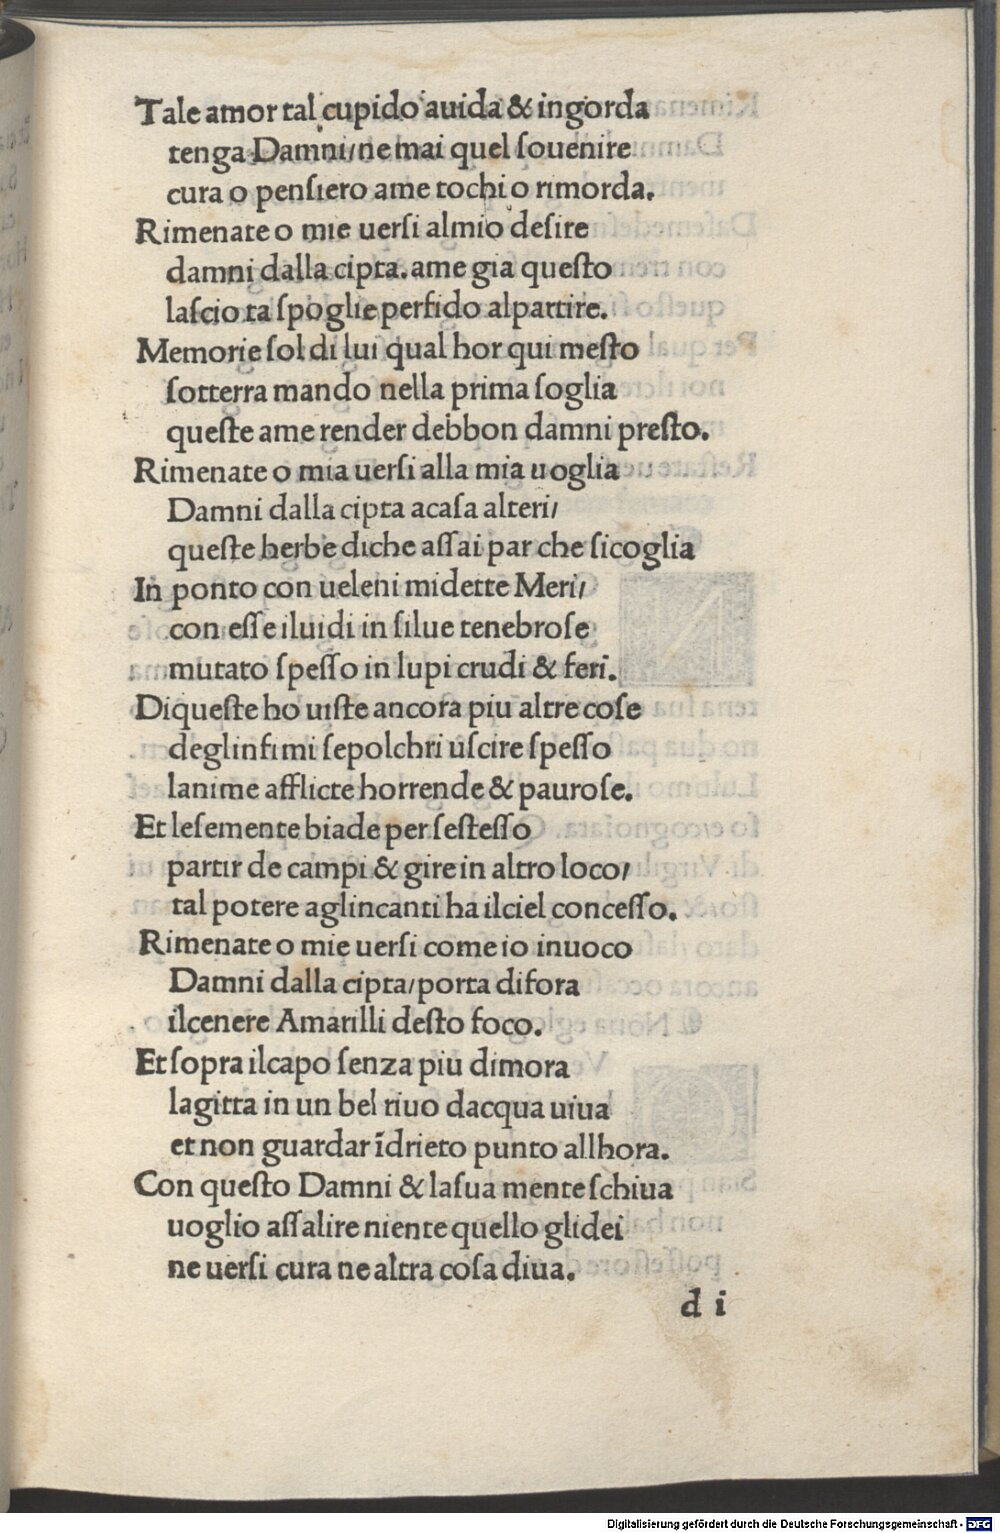 Tale amor tal cupido auida & ingorda
tenga Damni/ne mai quel ſouenire
cura o penſiero ame tochi o rimorda.
Rimenate o mie uerſi almio deſire
damni dalla cipta. ame gia queſto
laſcio ta ſpoglie perfido alpartire.
Memorie ſol di lui qual hor qui meſto
ſotterra mando nella prima ſoglia
queſte ame render debbon damni preſto.
Rimenate o mia uerſi alla mia uoglia
Damni dalla cipta acaſa alteri/
queſte herbe diche aſſai par che ſicoglia
In ponto con ueleni midette Meri/
con eſſe iluidi in ſilue tenebroſe
mutato ſpeſſo in lupi crudi & feri.
Diqueſte ho uiſte ancora piu altre coſe
deglinfimi ſepolchri uſcire ſpeſſo
lanime afflicte horrende & pauroſe.
Et leſemente biade per ſeſteſſo
partir de campi & gire in altro loco/
tal potere aglincanti ha ilciel conceſſo.
Rimenate o mie uerſi come io inuoco
Damni dalla cipta/porta difora
ilcenere Amarilli deſto foco.
Et ſopra ilcapo ſenza piu dimora
lagitta in un bel riuo dacqua uiua
et non guardar īdrieto punto allhora.
Con queſto Damni & laſua mente ſchiua
uoglio aſſalire niente quello glidei
ne uerſi cura ne altra coſa diua.
d i
Digitalisierung gefördert durch die Deutsche Forschungsgemeinschaft - DFG